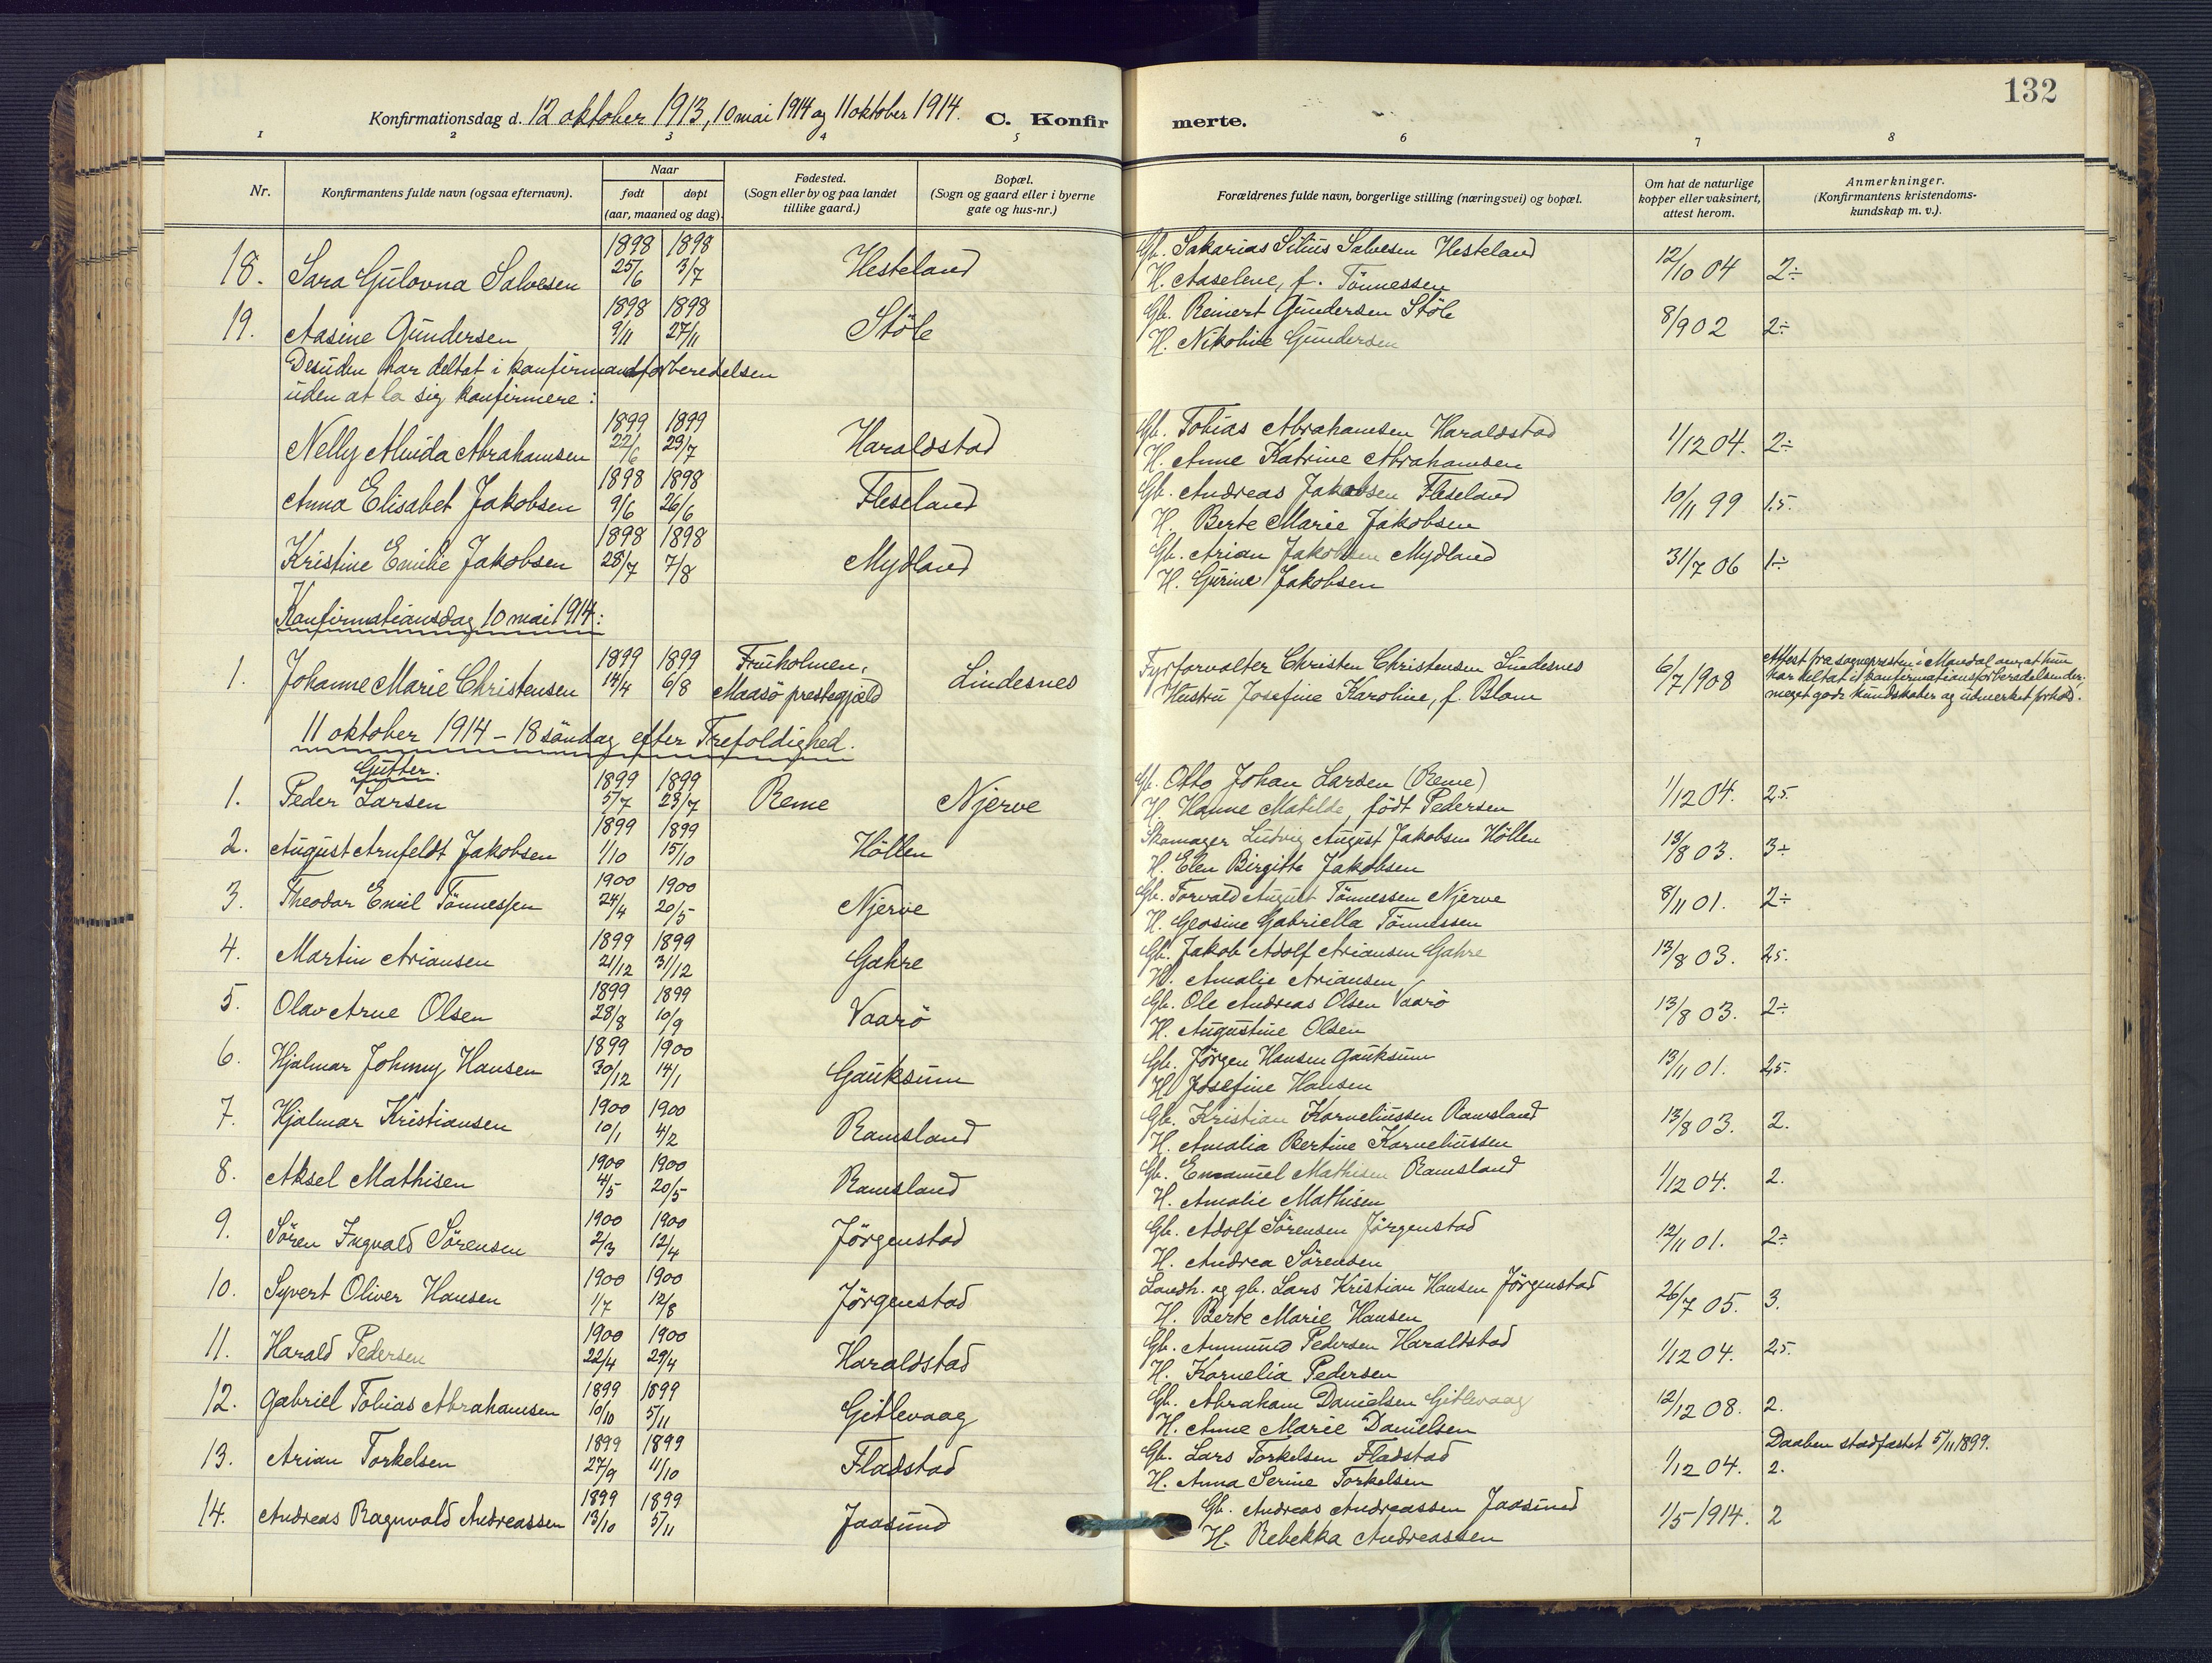 132
Konfirmationsdag d. 12 oktober 1913, 10 mai 1914 og 11 oktober 1914. C. Konfirmerte.
1 2 3 4 5 6 7 8
Nr. Konfirmantens fulde navn (ogsaa efternavn). Naar født døpt (aar, maaned og dag). Fødested. (Sogn eller by og paa landet tillike gaard.) Bopæl. (Sogn og gaard eller i byerne gate og hus-nr.) Forældrenes fulde navn, borgerlige stilling (næringsvei) og bopæl. Om hat de naturlige kopper eller vaksinert, attest herom. Anmerkninger. (Konfirmantens kristendoms-kundskap m. v.).
1898 1898 Gb. Sakarias Silius Salvesen Hesteland
18. Sara Gulovna Salvesen 25/6 3/7 Hesteland H. Aaselene, f. Tönnessen 12/10 04 2÷
1898 1898 Gb. Reinert Gundersen Stöle
19. Aasine Gundersen 9/11 27/11 Stöle H. Nikoline Gundersen 8/9 02 2÷
Desuden har deltat i konfirmandforberedelsen
uden at la sig konfirmere:
1899 1899 Gb. Tobias Abrahamsen Haraldstad
Nelly Alvida Abrahamsen 22/6 29/7 Haraldstad H. Anne Katrine Abrahamsen 1/12 04. 2÷
1898 1898 Gb. Andreas Jakobsen Fleseland
Anna Elisabet Jakobsen 9/6 26/6 Fleseland H. Berte Marie Jakobsen 10/11 99 1.5.
1898 1898 Gb. Arian Jakobsen Mydland
Kristine Emilie Jakobsen 28/7 7/8 Mydland H. Gurine Jakobsen 31/7 06 1÷
Konfirmationsdag 10 mai 1914:
1899 1899 Fruholmen, Fyrforvalter Christen Christensen Lindesnes Attest fra sognepresten i Mandal om at hun
1. Johanne Marie Christensen 14/4 6/8 Maasö prestegjæld Lindesnes Hustru Josefine Karoline, f. Blom 6/7 1908 har deltat i konfirmationsforberedelsen der;
meget gode kundskaber og udmerket forhold.
11 oktober 1914 - 18 söndag efter Trefoldighed.
Gutter.
1899 1899 Gb. Otto Johan Larsen (Reme)
1. Peder Larsen 5/7 23/7 Reme Njerve H. Hanne Matilde, født Pedersen 1/12 04. 2.5.
1899 1899 Skomager Ludvig August Jakobsen Höllen
2. August Arnfeldt Jakobsen 1/10 15/10 Höllen H. Elen Birgitte Jakobsen 13/8 03. 3÷
1900 1900 Gb. Torvald August Tönnessen Njerve
3. Theodor Emil Tönnessen 24/4 20/5 Njerve H. Geosine Gabriella Tönnessen 8/11 01. 2÷
1899 1899 Gb. Jakob Adolf Ariansen Gahre
4. Martin Ariansen 21/12 31/12 Gahre H. Amalie Ariansen 13/8 03. 2.5.
1899 1899 Gb. Ole Andreas Olsen Vaarö
5. Olav Arne Olsen 28/8 10/9 Vaarö H. Augustine Olsen 13/8 03. 2÷
1899 1900 Gb. Jörgen Hansen Gauksum
6. Hjalmar Johnny Hansen 30/12 14/1 Gauksum H. Josefine Hansen 13/11 01. 2.5.
1900 1900 Gb. Kristian Korneliussen Ramsland
7. Hjalmar Kristiansen 10/1 4/2 Ramsland H. Amalia Bertine Korneliussen 13/8 03. 2.
1900 1900 Gb. Emanuel Mathisen Ramsland
8. Aksel Mathisen 4/5 20/5 Ramsland H. Amalie Mathisen 1/12 04. 2.
1900 1900 Gb. Adolf Sörensen Jörgenstad
9. Sören Ingvald Sörensen 2/3 12/4 Jörgenstad H. Andrea Sörensen 12/11 01. 2÷
1900 1900 Landh. og gb. Lars Kristian Hansen Jörgenstad
10. Syvert Oliver Hansen 1/7 12/8 Jörgenstad H. Berte Marie Hansen 26/7 05. 3.
1900 1900 Gb. Ammund Pedersen Haraldstad
11. Harald Pedersen 22/4 29/4 Haraldstad H. Kornelia Pedersen 1/12 04. 2.5.
1899 1899 Gb. Abraham Danielsen Gitlevaag
12. Gabriel Tobias Abrahamsen 10/10 5/11 Gitlevaag H. Anne Marie Danielsen 12/12 08. 2.
1899 1899 Gb. Lars Torkelsen Fladstad Daaben stadfæstet 5/11 1899.
13. Arian Torkelsen 27/9 11/10 Fladstad H. Anna Serine Torkelsen 1/12 04. 2.
1899 1899 Gb. Andreas Andreassen Jaasund
14. Andreas Ragnvald Andreassen 13/10 5/11 Jaasund H. Rebekka Andreassen 1/5 1914. 2